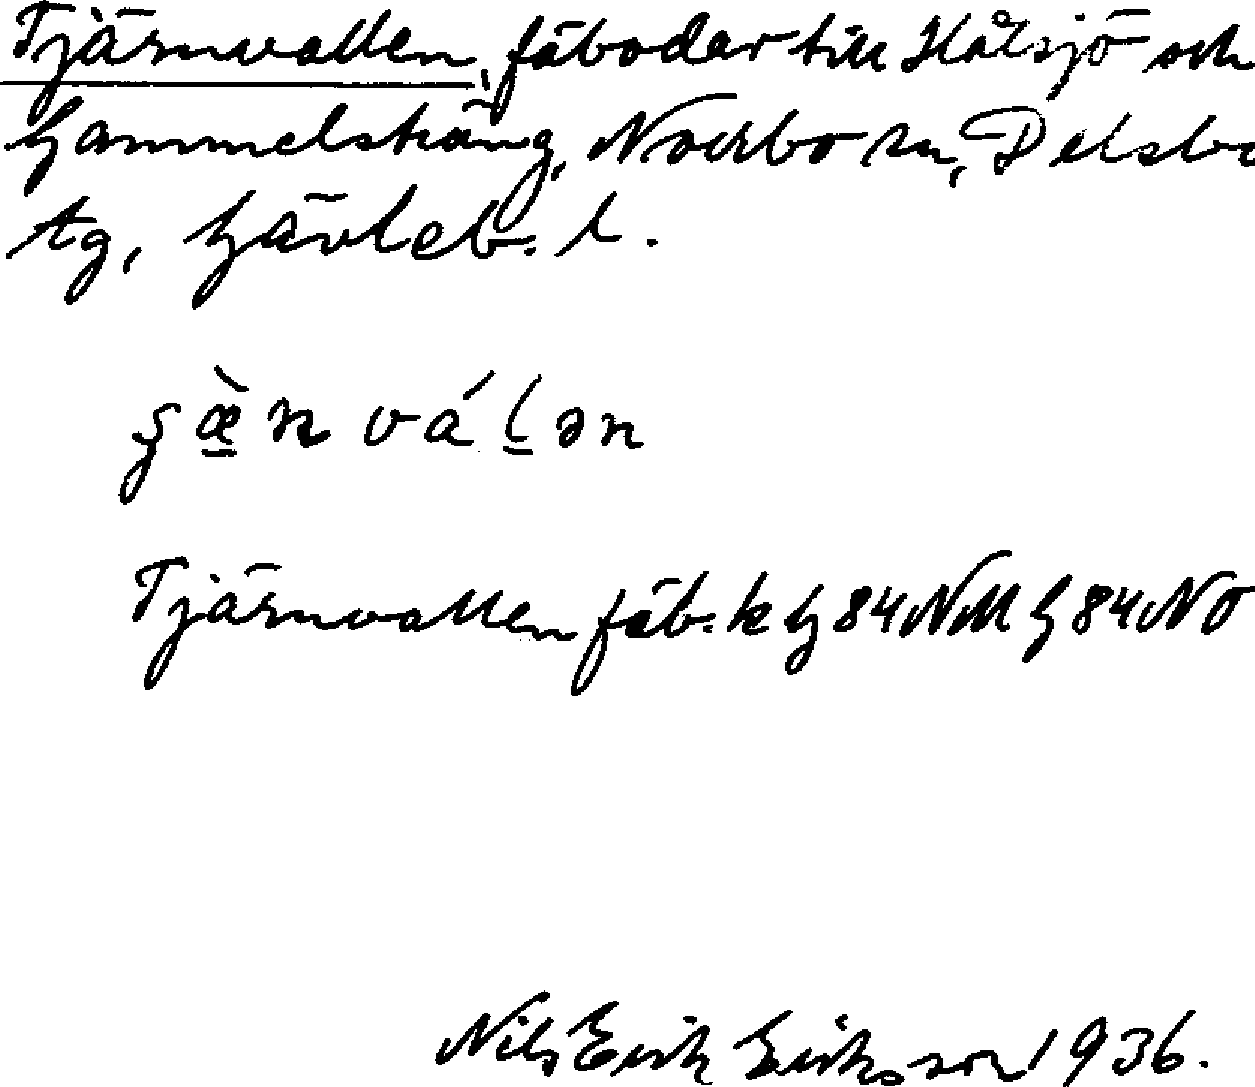 Tjärnvallen, fäbodar till Hålsjö och
Gammelsträng, Norrbo sn, Delsbo
tg, Gävleb. l.
ʂæ̠̀n vál̠ən
Tjärnvallen fäb. k G 84 NM G 84 NO
Nils Erik Eriksson 1936.